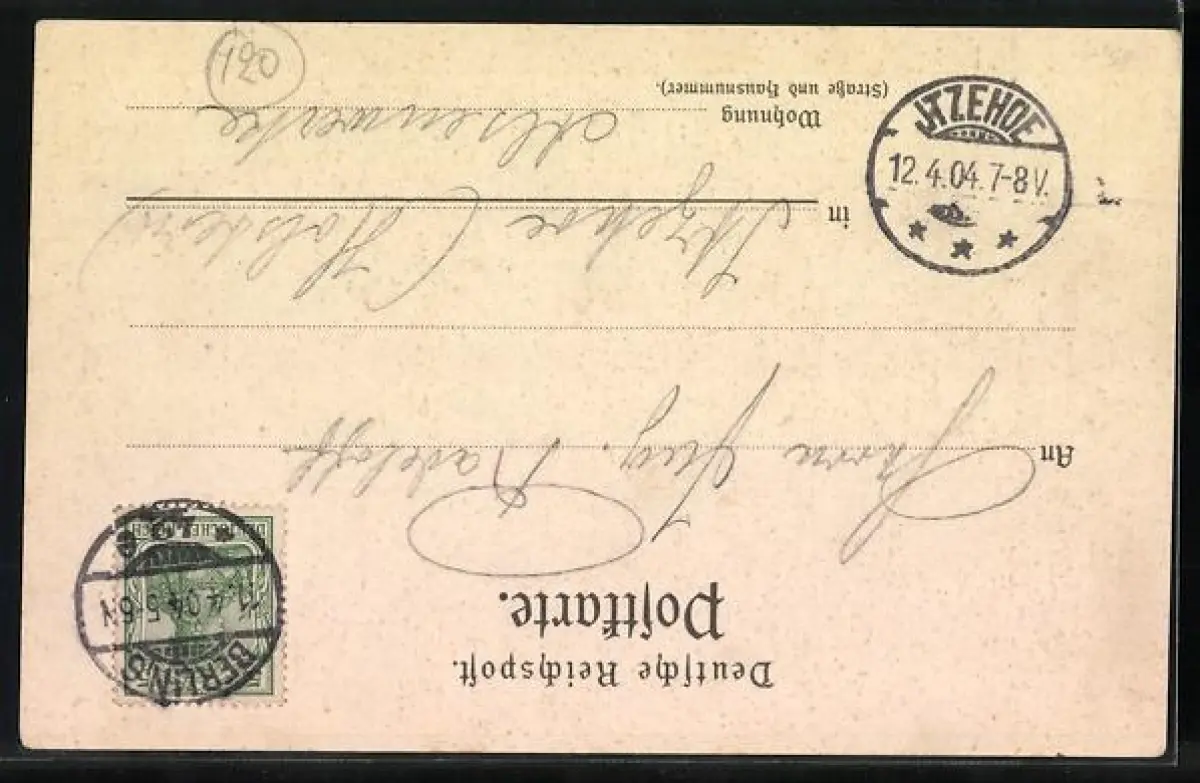 Deutsche Reichspost.
Postkarte.
BERLIN
11.4.04.5-6N
DEUTSCHES REICH
An Herrn Aug. Radeloff
in Itzehoe (Holstein)
Wohnung Alsenwerke
(Straße und Hausnummer).
JTZEHOE
12.4.04.7-8V.
120